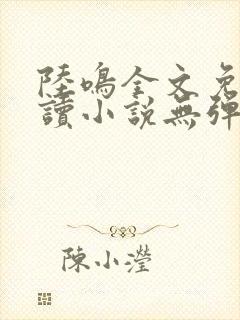 陸鳴全文免
讀小說無彈
陳小瀅